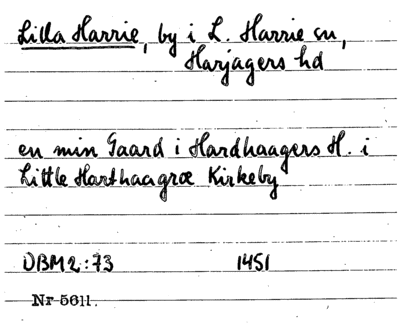 Lilla Harrie, by i L. Harrie sn,
Harjagers hd
en min Gaard i Hardhaagers H. i
Little Harthaagræ Kirkeby
ÖBM 2:73 1451
Nr 5611.